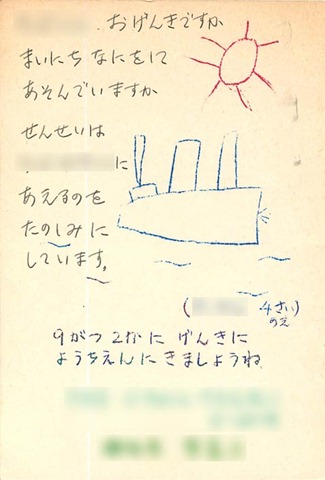 おげんきですか
まいにち なにをして
あそんでいますか
せんせいは
に
あえるのを
たのしみに
しています。
( 4さい)
のえ
9がつ 2かに げんきに
ようちえんに きましょうね